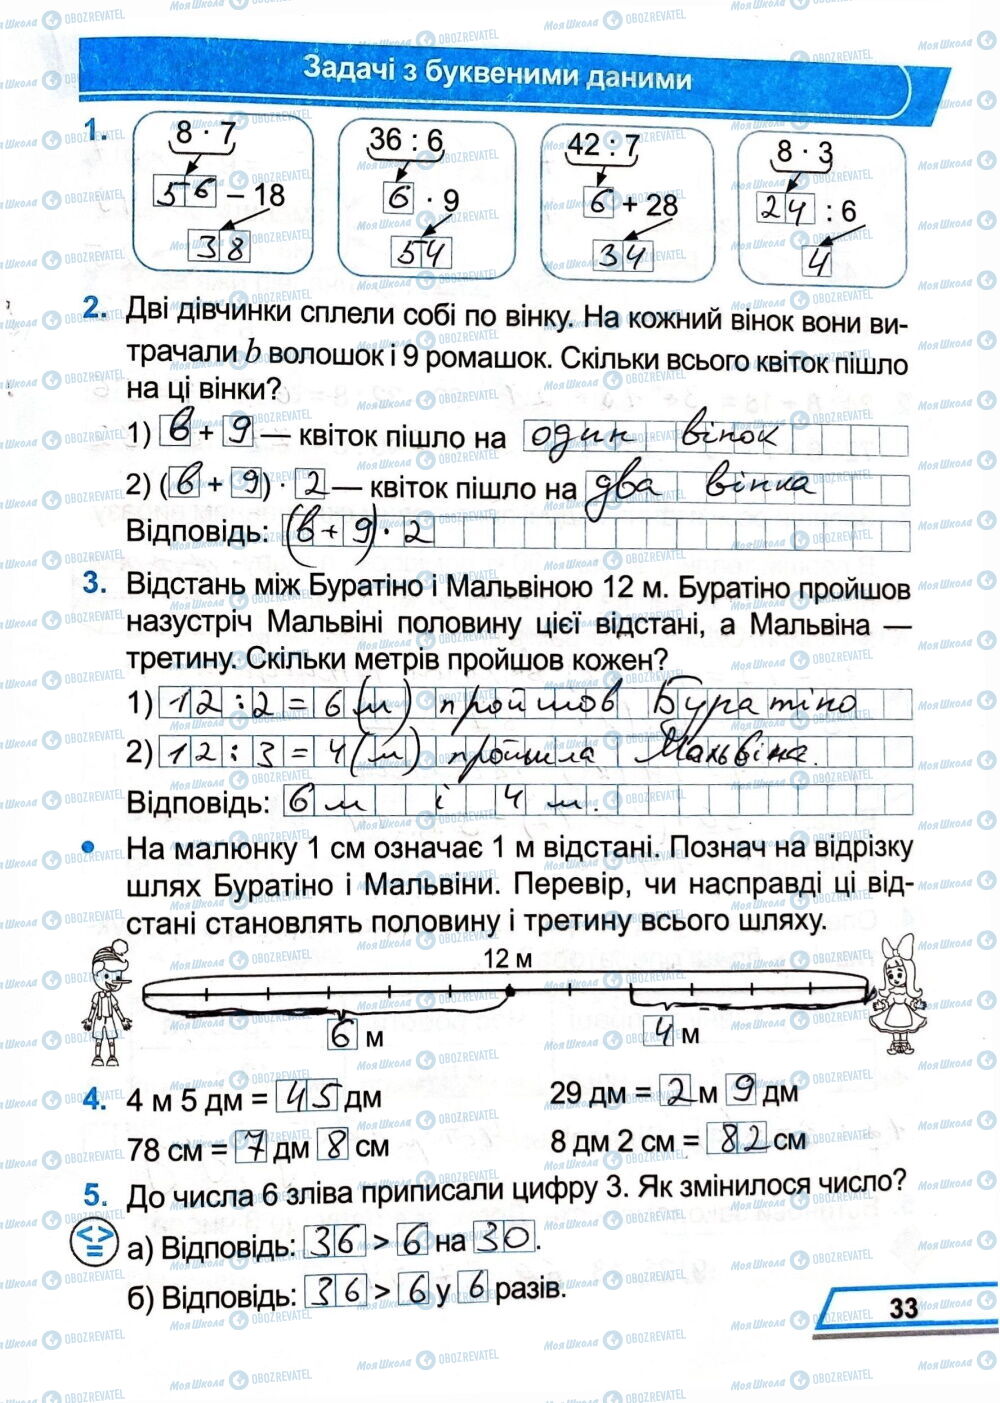 Задачі з буквеними даними
1.
8 · 7
56 – 18
38
36 : 6
6 · 9
54
42 : 7
6 + 28
34
8 · 3
24 : 6
4
2. Дві дівчинки сплели собі по вінку. На кожний вінок вони ви-
трачали b волошок і 9 ромашок. Скільки всього квіток пішло
на ці вінки?
1) в + 9 — квіток пішло на один вінок
2) (в + 9) · 2 — квіток пішло на два вінка
Відповідь: (в + 9) · 2
3. Відстань між Буратіно і Мальвіною 12 м. Буратіно пройшов
назустріч Мальвіні половину цієї відстані, а Мальвіна —
третину. Скільки метрів пройшов кожен?
1) 12 : 2 = 6 (м) пройшов Буратіно
2) 12 : 3 = 4 (м) пройшла Мальвіна.
Відповідь: 6 м і 4 м.
• На малюнку 1 см означає 1 м відстані. Познач на відрізку
шлях Буратіно і Мальвіни. Перевір, чи насправді ці від-
стані становлять половину і третину всього шляху.
12 м
6 м 4 м
4. 4 м 5 дм = 45 дм 29 дм = 2 м 9 дм
78 см = 7 дм 8 см 8 дм 2 см = 82 см
5. До числа 6 зліва приписали цифру 3. Як змінилося число?
<>
=
а) Відповідь: 36 > 6 на 30.
б) Відповідь: 36 > 6 у 6 разів.
33
МояШкола OBOZREVATEL